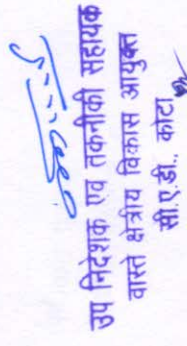 उप निदेशक एवं तकनीकी सहायक
वास्ते क्षेत्रीय विकास आयुक्त
सी.ए.डी., कोटा